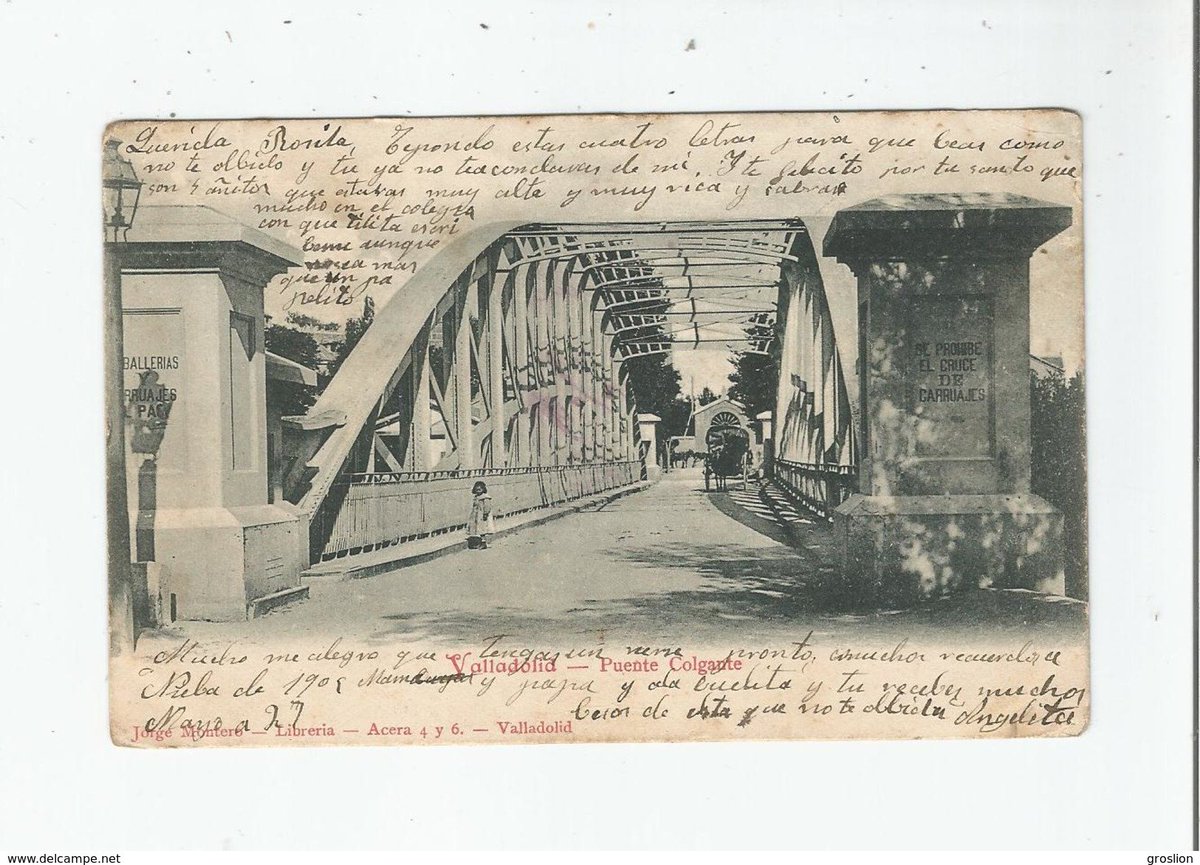 Querida Rosita, Te pondo estas cuatro letras para que beas como
no te olbido y tu ya no te acondaras de mi. Y te felicito por tu santo que
son 5 añitos que estaras muy alta y muy rica y sabras
mucho en el colegia
con que titita escri
beme aunque
no sea mas
que un pa
pelito
BALLERIAS
RRUAJES
PAC
SE PROHIBE
EL CRUCE
DE
CARRUAJES
Mucho me alegro que tengas un nene pronto, con muchos recuerdos a
Valladolid — Puente Colgante
Nieba de 1905 Mama y papa y a la buelita y tu recebes muchos
Mayo a 27 besos de esta que no te olbida Angelita
Jorge Montero — Libreria — Acera 4 y 6. — Valladolid
www.delcampe.net
groslion